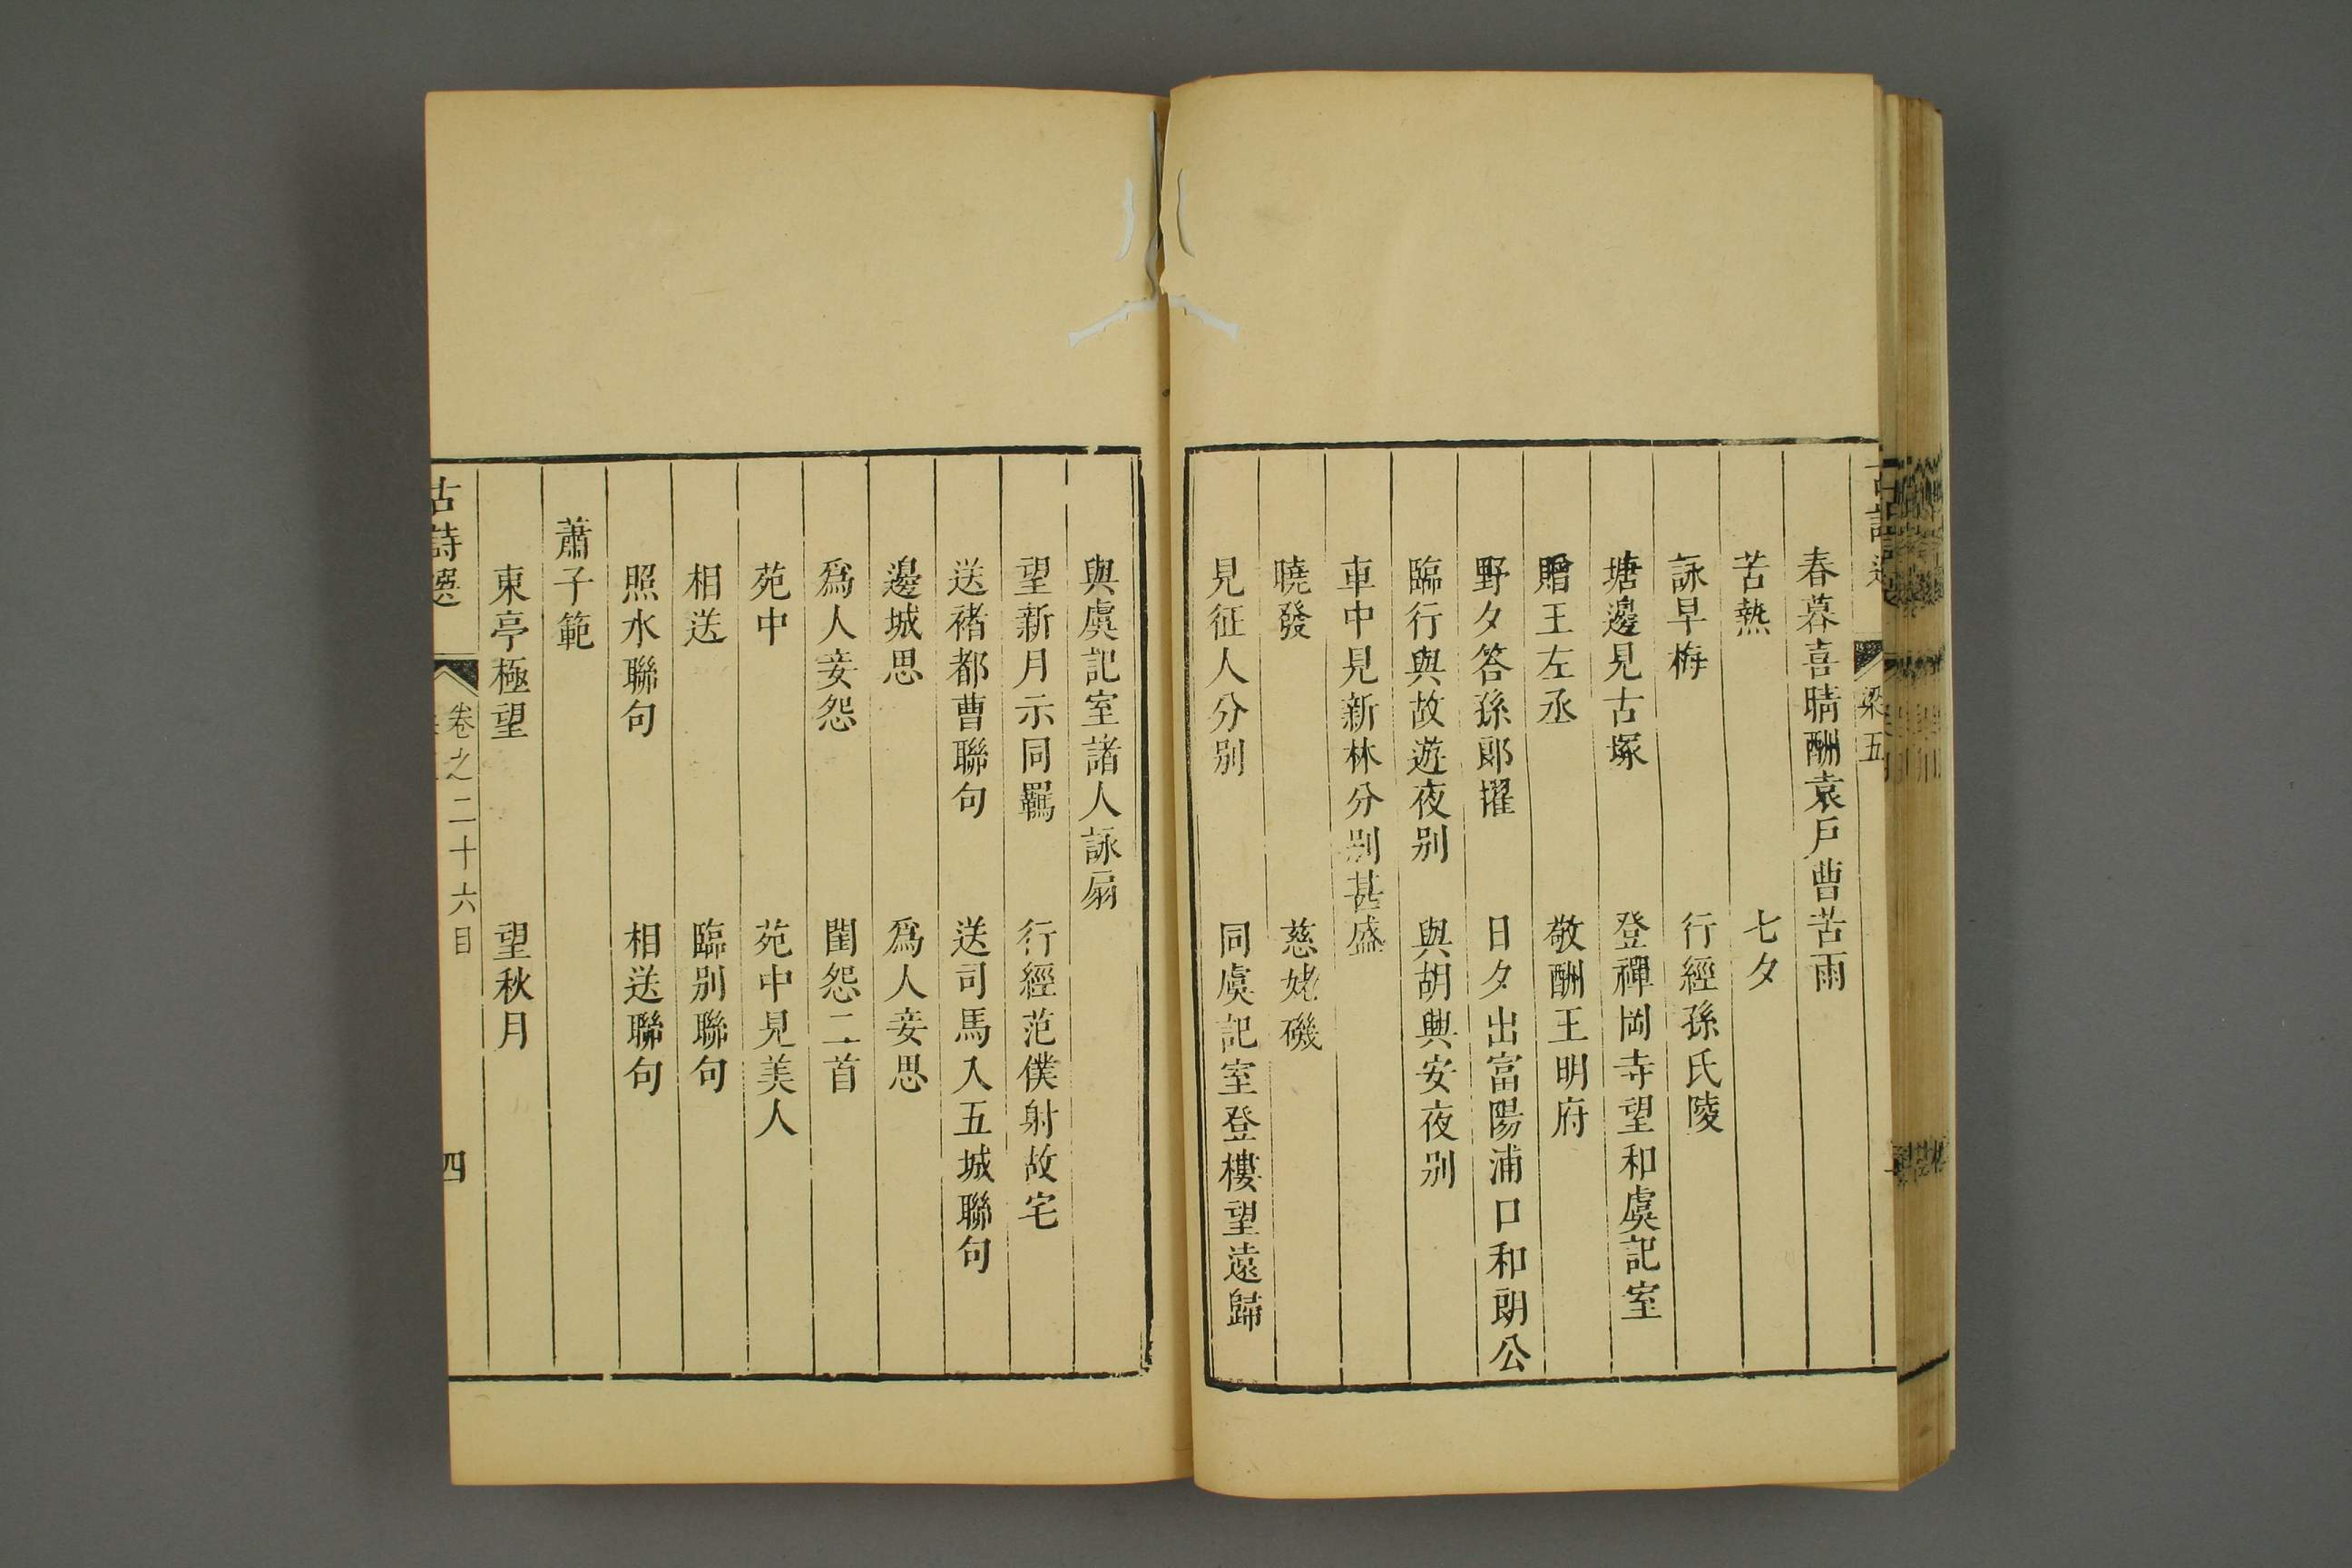 梁五
春暮喜晴酬袁戶曹苦雨
苦熱　七夕
詠早梅　行經孫氏陵
塘邊見古塚　登禪岡寺望和虞記室
贈王左丞　敬酬王明府
野夕答孫郎擢　日夕出富陽浦口和朗公
臨行與故遊夜别　與胡興安夜别
車中見新林分别甚盛
曉發　慈姥磯
見征人分别　同虞記室登樓望遠歸
與虞記室諸人詠扇
望新月示同羈　行經范僕射故宅
送褚都曹聯句　送司馬入五城聯句
邊城思　爲人妾思
爲人妾怨　閨怨二首
苑中　苑中見美人
相送　臨别聯句
照水聯句　相送聯句
蕭子範
東亭極望　望秋月
古詩選　卷之二十六目　四